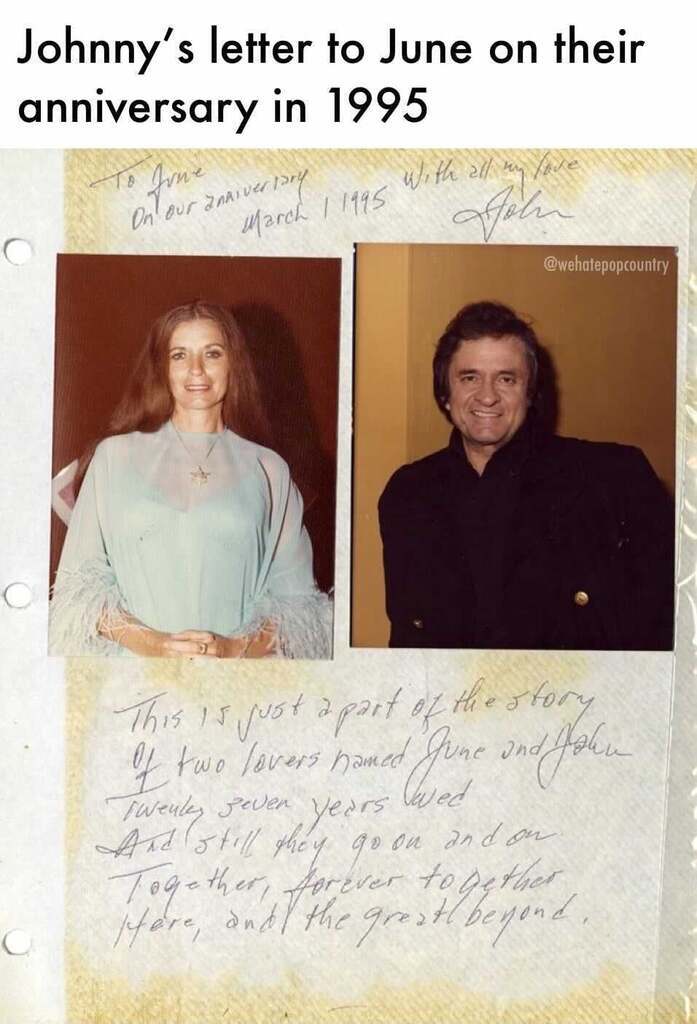 Johnny's letter to June on their
anniversary in 1995
To June
On our anniversary
March 1 1995
With all my love
John
@wehatepopcountry
This is just a part of the story
Of two lovers named June and John
Twenty seven years wed
And still they go on and on
Together, forever together
Here, and the great beyond.